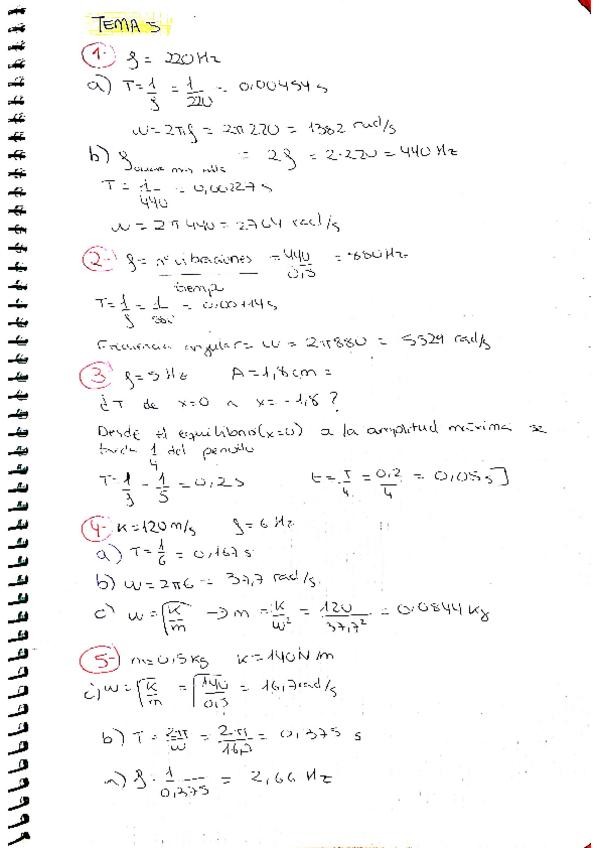 TEMA 5
1- f = 220 Hz
a) T = 1/f = 1/220 = 0,00454 s
w = 2πf = 2π220 = 1382 rad/s
b) f = 2f = 2·220 = 440 Hz
T = 1/440 = 0,00227 s
w = 2π440 = 2764 rad/s
2- f = nº vibraciones/tiempo = 440/0,5 = 880 Hz
T = 1/f = 1/880 = 0.00114 s
Frecuencia angular = w = 2π880 = 5529 rad/s
3 f = 5 Hz A = 1,8 cm =
¿T de x=0 a x= -1,8?
Desde el equilibrio (x=0) a la amplitud máxima se
tarda 1/4 del periodo
T = 1/f = 1/5 = 0,2 s t = T/4 = 0,2/4 = 0,05 s]
4- K = 120 m/s f = 6 Hz
a) T = 1/6 = 0,167 s
b) w = 2π6 = 37,7 rad/s
c) w = √K/m → m = K/w² = 120/37,7² = 0.0844 Kg
5- m = 0,5 kg K = 140 N/m
c) w = √K/m = √140/0,5 = 16,7 rad/s
b) T = 2π/w = 2·π/16,7 = 0,375 s
a) f = 1/0,375 = 2,66 Hz